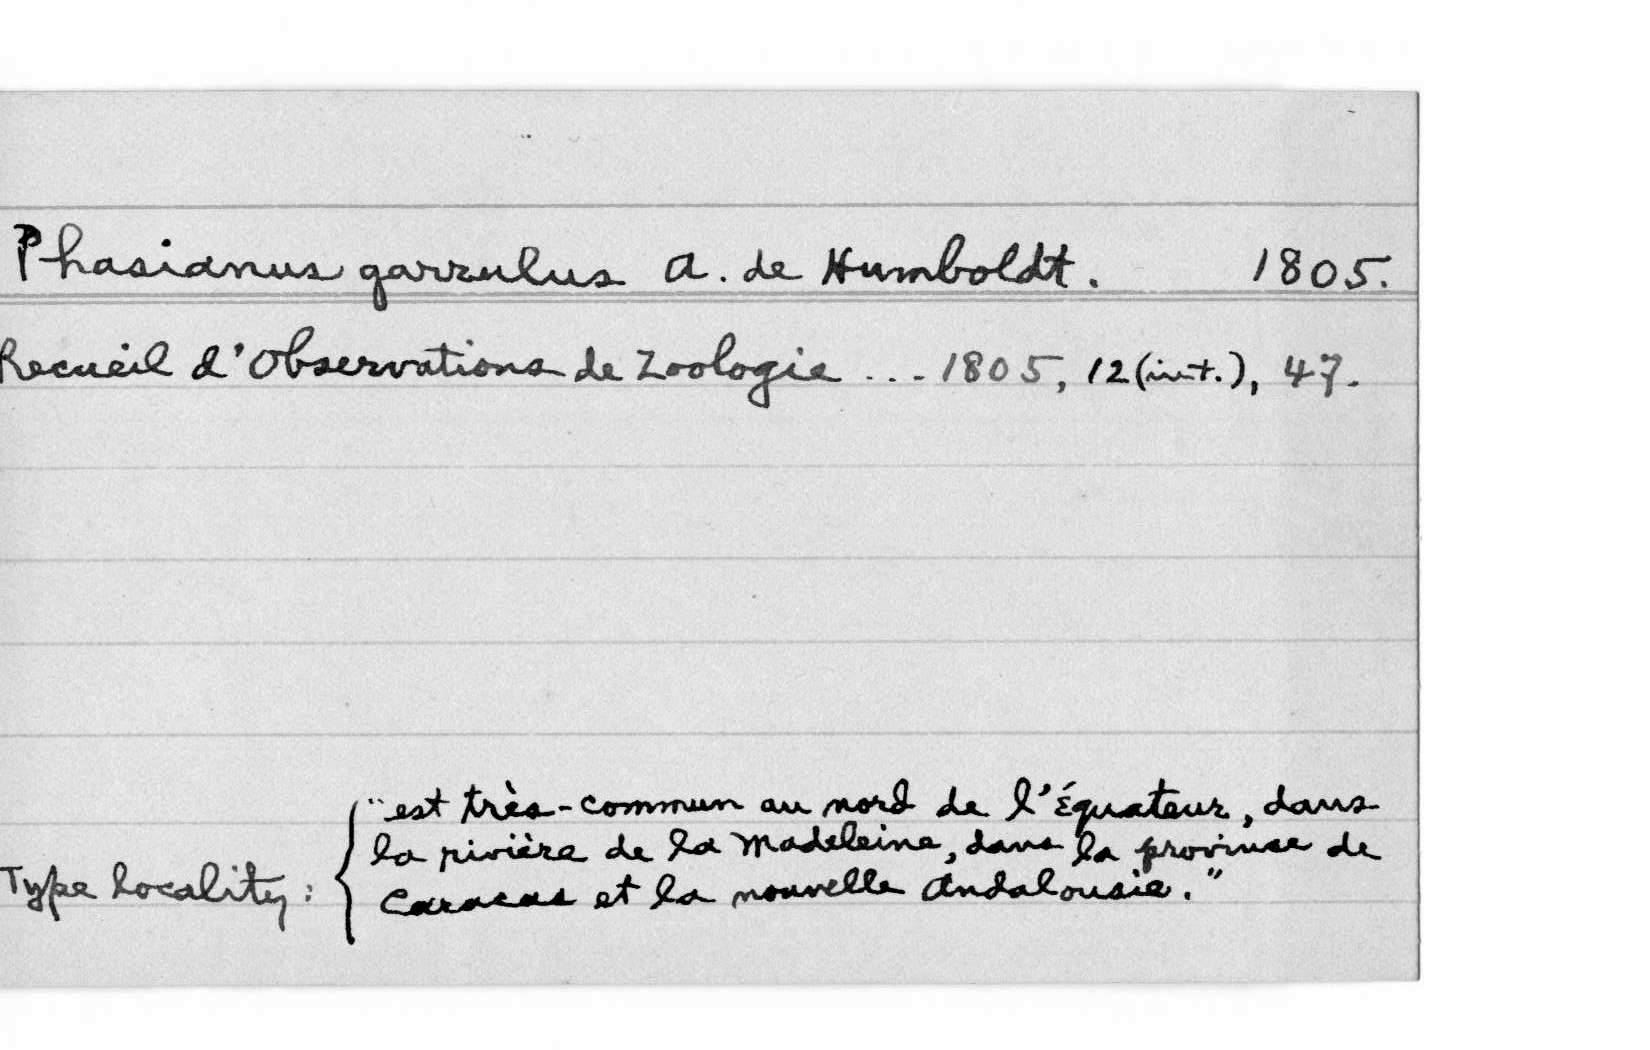 Phasianus garrulus A. de Humboldt. 1805.
Recueil d'Observations de Zoologie ... 1805, 12 (int.), 47.
"est très-commun au nord de l'Équateur, dans
la rivière de la Madeleine, dans la province de
Type locality: Caracas et la nouvelle Andalousie."